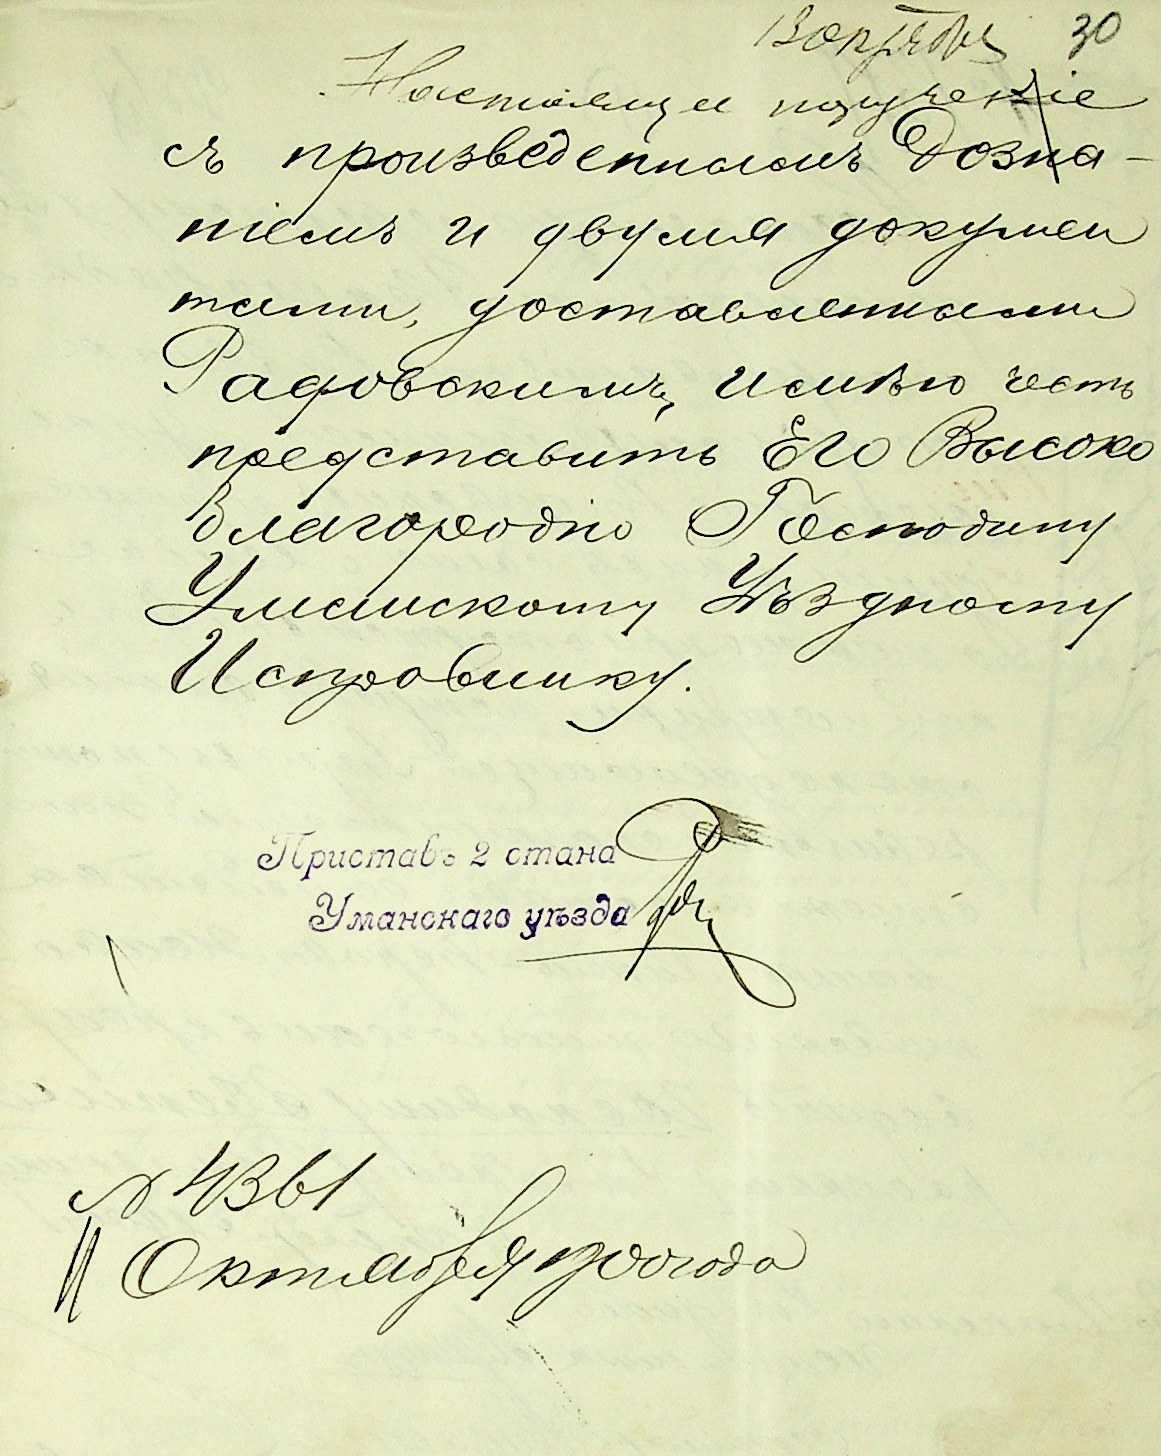 13 октября 30
Настоящее поручение
съ произведеннымъ Дозна-
ніемъ и двумя докумен
тами, доставленными
Радовскимъ, имѣю честь
представить Его Высоко
благородію Господину
Уманскому Уѣздному
Исправнику.
Приставъ 2 стана
Уманскаго уѣзда
№ 4361
11 Октября года